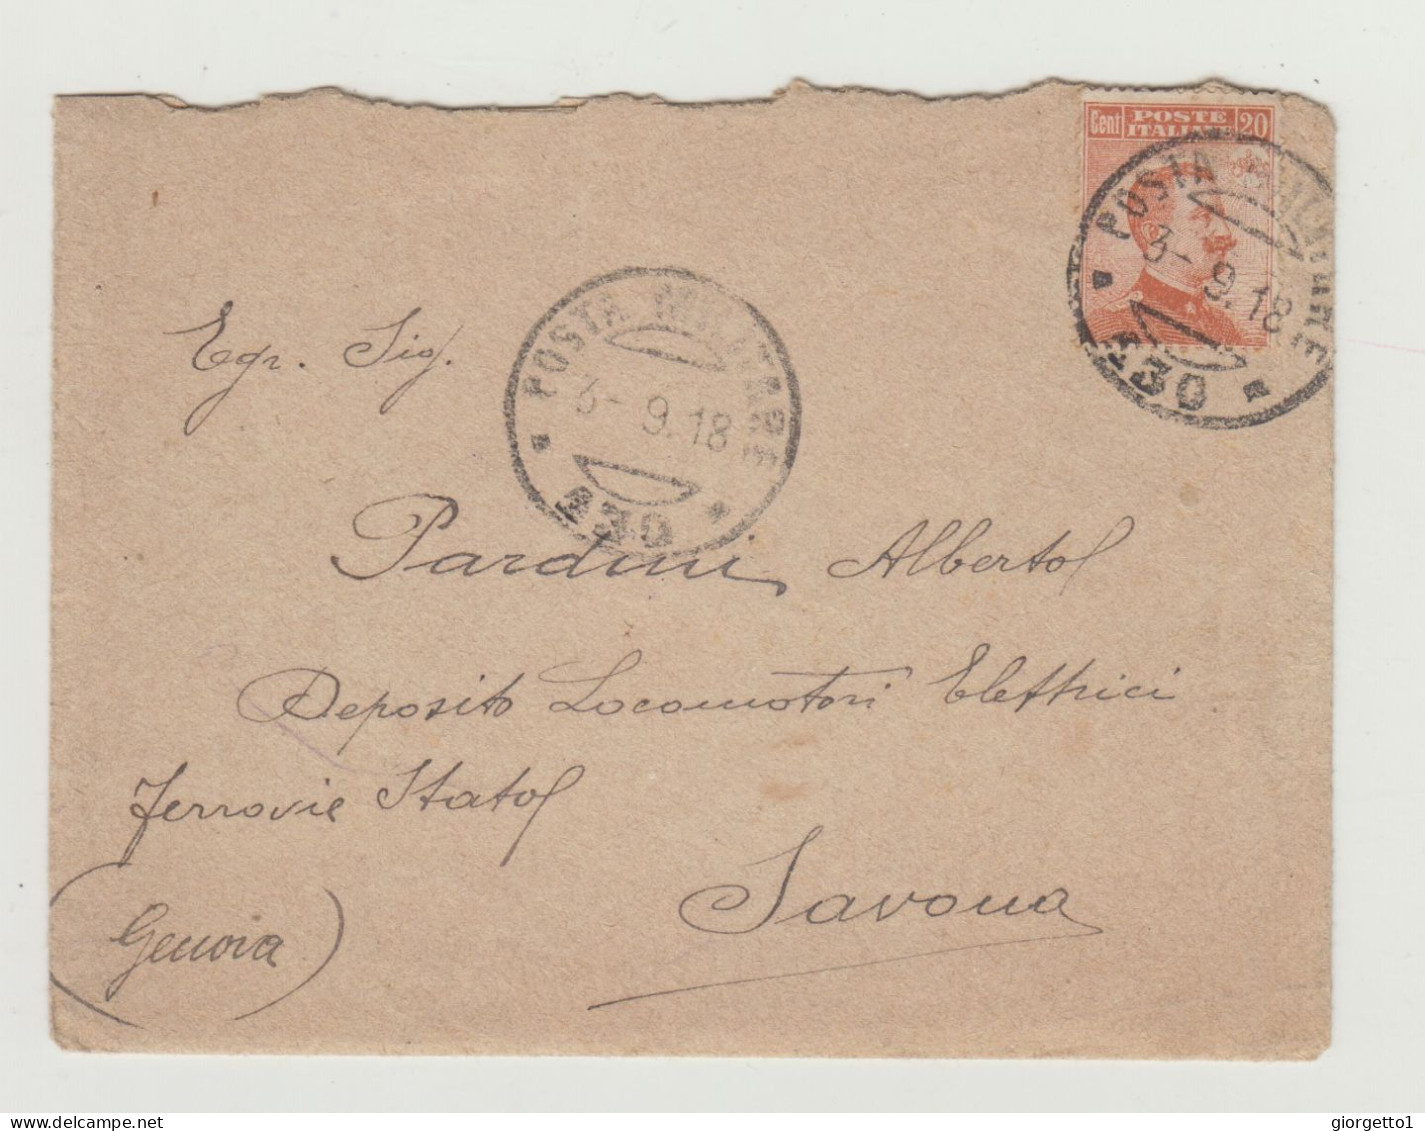 Cent POSTE 20
ITALIANE
POSTA MILITARE
3-9.18
230
POSTA MILITARE
3-9.18
230
Egr. Sig.
Pardini Alberto
Deposito Locomotori Elettrici
Ferrovie Stato
Savona
(Genova)
delcampe.net
giorgetto1